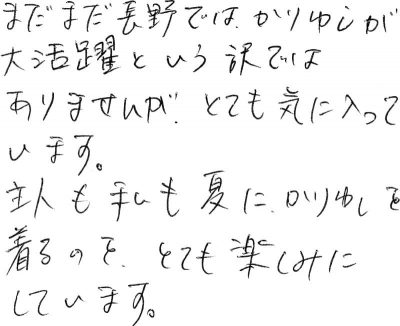 まだまだ長野では、かりゆしが
大活躍という訳では
ありませんが、とても気に入って
います。
主人も私も夏に、かりゆしを
着るのを、とても楽しみに
しています。